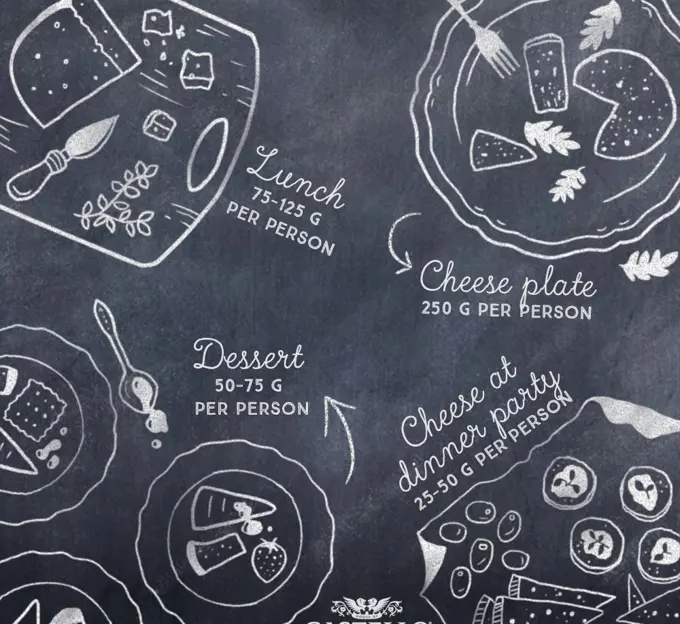 Lunch
75-125 G
PER PERSON
Cheese plate
250 G PER PERSON
Dessert
50-75 G
PER PERSON
Cheese at
dinner party
25-50 G PER PERSON